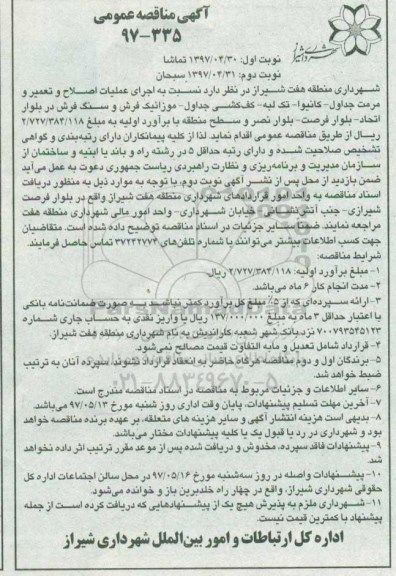 آگهی مناقصه عمومی
۹۷-۳۳۵
نوبت اول: ۱۳۹۷/۰۴/۳۰ تماشا
نوبت دوم: ۱۳۹۷/۰۴/۳۱ سبحان
شهرداری منطقه هفت شیراز در نظر دارد نسبت به اجرای عملیات اصلاح و تعمیر و
مرمت جداول- کانیوا- تک لبه- کف‌کشی جداول- موزائیک فرش و سنگ فرش در بلوار
اتحاد- بلوار فرصت- بلوار نصر و سطح منطقه با برآورد اولیه به مبلغ ۲/۷۲۷/۳۸۴/۱۱۸
ریال از طریق مناقصه عمومی اقدام نماید لذا از کلیه پیمانکاران دارای رتبه‌بندی و گواهی
تشخیص صلاحیت شده و دارای رتبه حداقل ۵ در رشته راه و باند یا ابنیه و ساختمان از
سازمان مدیریت و برنامه‌ریزی و نظارت راهبردی ریاست جمهوری دعوت به عمل می‌آید
ضمن بازدید از محل پس از نشر آگهی نوبت دوم، با توجه به موارد ذیل به منظور دریافت
اسناد مناقصه به واحد امور قراردادهای شهرداری منطقه هفت شیراز واقع در بلوار فرصت
شیرازی- جنب آتش‌نشانی- خیابان شهرداری- واحد امور مالی شهرداری منطقه هفت
مراجعه نمایند ضمناً سایر جزئیات در اسناد مناقصه توضیح داده شده است. متقاضیان
جهت کسب اطلاعات بیشتر می‌توانند با شماره تلفن‌های ۳۷۲۴۲۷۷۴ تماس حاصل فرمایند
شرایط مناقصه:
۱- مبلغ برآورد اولیه: ۲/۷۲۷/۳۸۴/۱۱۸ ریال.
۲- مدت انجام کار ۶ ماه می‌باشد.
۳- ارائه سپرده‌ای که از ۵٪ مبلغ کل برآورد کمتر نباشد به صورت ضمانت‌نامه بانکی
با اعتبار حداقل ۳ ماه به مبلغ ۱۳۷/۰۰۰/۰۰۰ ریال یا واریز نقدی به حساب جاری شماره
۷۰۰۷۹۳۵۴۵۱۲۳ نزد بانک شهر شعبه کارآندیش به نام شهرداری منطقه هفت شیراز.
۴- قرارداد شامل تعدیل و مابه التفاوت قیمت مصالح نمی‌شود.
۵- برندگان اول و دوم مناقصه هرگاه حاضر به انعقاد قرارداد نشوند، سپرده آنان به ترتیب
ضبط خواهد شد.
۶- سایر اطلاعات و جزئیات مربوط به مناقصه در اسناد مناقصه مندرج است.
۷- آخرین مهلت تسلیم پیشنهادات، پایان وقت اداری روز شنبه مورخ ۹۷/۰۵/۱۳ می‌باشد.
۸- بدیهی است هزینه انتشار آگهی و سایر هزینه های متعلقه، بر عهده برنده مناقصه خواهد
بود و شهرداری در رد یا قبول یک یا کلیه پیشنهادات مختار می‌باشد.
۹- پیشنهادات فاقد سپرده، مخدوش و دریافت شده پس از موعد مقرر ترتیب اثر داده نخواهد
شد.
۱۰- پیشنهادات واصله در روز سه‌شنبه مورخ ۹۷/۰۵/۱۶ در محل سالن اجتماعات اداره کل
حقوقی شهرداری شیراز، واقع در چهار راه خلدبرین باز و خوانده می‌شود.
۱۱- شهرداری ملزم به پذیرش هیچ یک از پیشنهادهایی که دریافت کرده است از جمله
پیشنهاد با کمترین قیمت نیست.
اداره کل ارتباطات و امور بین‌الملل شهرداری شیراز